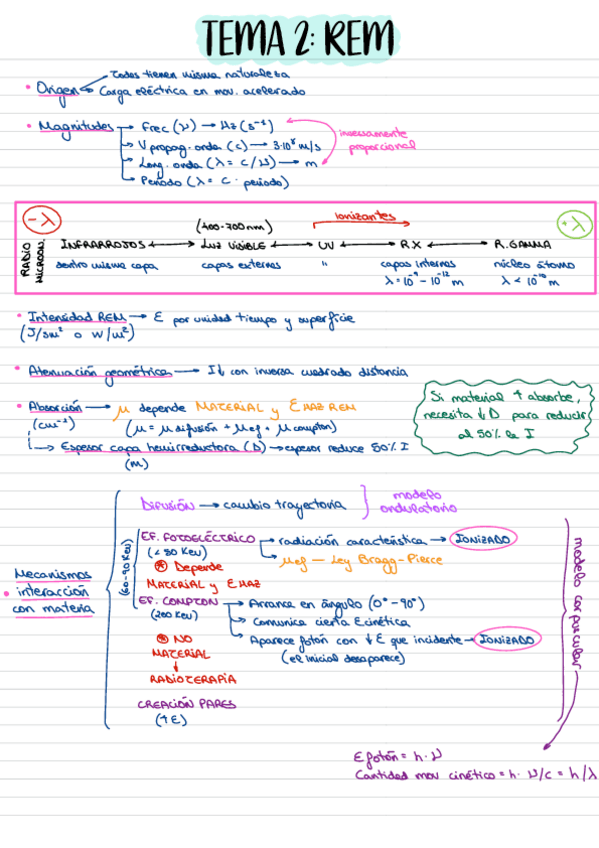 TEMA 2: REM
• Origen
Todas tienen misma naturaleza
Carga eléctrica en mov. acelerado
• Magnitudes → Frec (ν) → Hz (s⁻¹)
→ V propag. onda (c) → 3·10⁸ m/s
→ Long. onda (λ = c/ν) → m
→ Periodo (λ = c · periodo)
inversamente
proporcional
- λ
+ λ
(400-700nm)
Ionizantes
RADIO
MICROON.
INFRARROJOS ↔ LUZ VISIBLE ↔ UV ↔ R.X ↔ R. GAMMA
dentro misma capa
capas externas
"
capas internas
λ = 10⁻⁹ - 10⁻¹² m
núcleo átomo
λ < 10⁻¹⁰ m
• Intensidad REM → E por unidad tiempo y superficie
(J/sm² o W/m²)
• Atenuación geométrica → I↓ con inversa cuadrado distancia
• Absorción → μ depende MATERIAL y E HAZ REM
(cm⁻¹)
(μ = μ difusión + μ ef + μ compton)
→ Espesor capa hemirreductora (D) → espesor reduce 50% I
(m)
Si material ↑ absorbe,
necesita ↓ D para reducir
al 50% la I
• Mecanismos
interacción
con materia
DIFUSIÓN → cambio trayectoria
modelo
ondulatorio
(60-90 KeV)
EF. FOTOELÉCTRICO → radiación característica → IONIZADO
(< 50 KeV)
→ μef — Ley Bragg-Pierce
* Depende
MATERIAL y E HAZ
EF. COMPTON → Arranca en ángulo (0° - 90°)
(200 KeV)
→ Comunica cierta E cinética
→ Aparece fotón con ↓ E que incidente → IONIZADO
(el inicial desaparece)
* NO
MATERIAL
↓
RADIOTERAPIA
CREACIÓN PARES
(↑E)
modelo corpuscular
E fotón = h · ν
Cantidad mov cinético = h · ν/c = h/λ